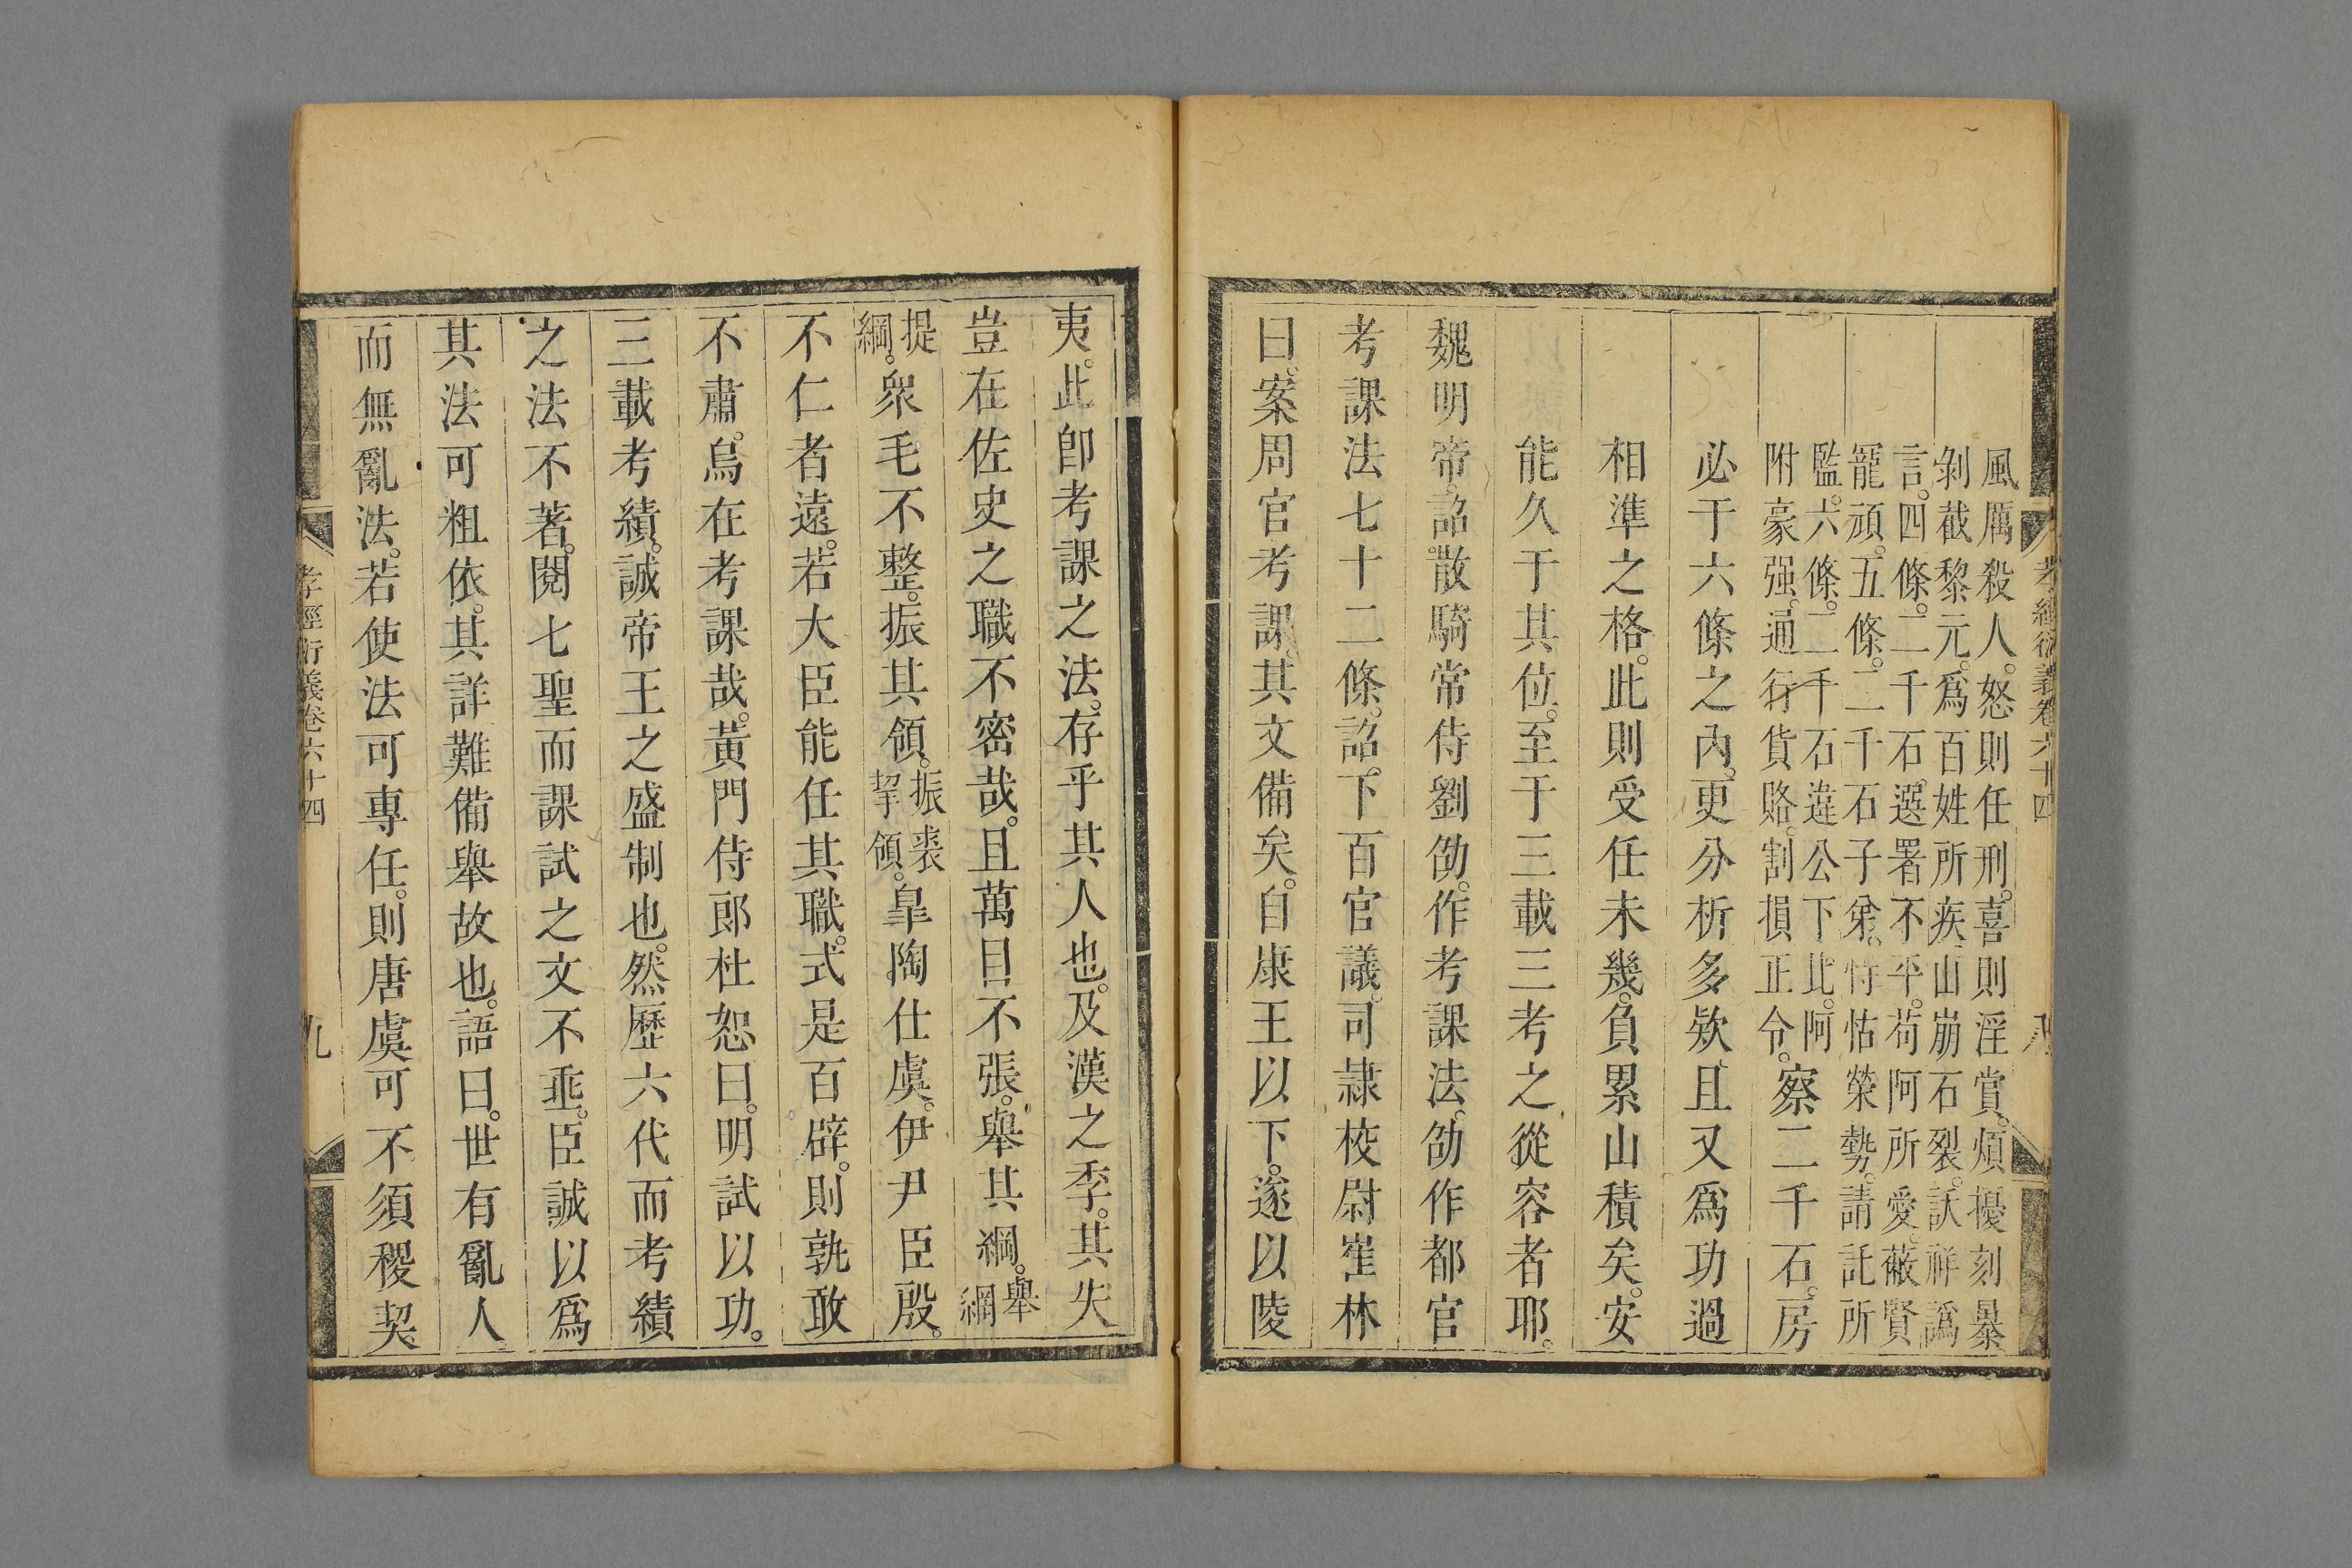 孝經衍義卷六十四 八
風厲殺人。怒則任刑。喜則淫賞。煩擾刻暴
剝截黎元。爲百姓所疾。山崩石裂。訞祥譌
言。四條。二千石。選署不平。苟阿所愛。蔽賢
寵頑。五條。二千石子弟。恃怙榮勢。請託所
監。六條。二千石違公下比。阿
附豪强。通行貨賂。割損正令。察二千石。房
必于六條之內。更分析多欵。且又爲功過
相準之格。此則受任未幾。負累山積矣。安
能久于其位。至于三載三考之從容者耶。
魏明帝。詔散騎常侍劉劭。作考課法。劭作都官
考課法七十二條。詔。下百官議。司隷校尉崔林
曰。案周官考課。其文備矣。自康王以下。遂以陵
夷。此卽考課之法。存乎其人也。及漢之季。其失
豈在佐吏之職不密哉。且萬目不張。舉其綱。舉綱
提綱。衆毛不整。振其領。振裘挈領。臯陶仕虞。伊尹臣殷。
不仁者遠。若大臣能任其職。式是百辟。則孰敢
不肅。烏在考課哉。黃門侍郎杜恕曰。明試以功。
三載考績。誠帝王之盛制也。然歷六代而考績
之法不著。閱七聖而課試之文不垂。臣誠以爲
其法可粗依。其詳難備舉故也。語曰。世有亂人
而無亂法。若使法可專任。則唐虞可不須稷契。
孝經衍義卷六十四 九